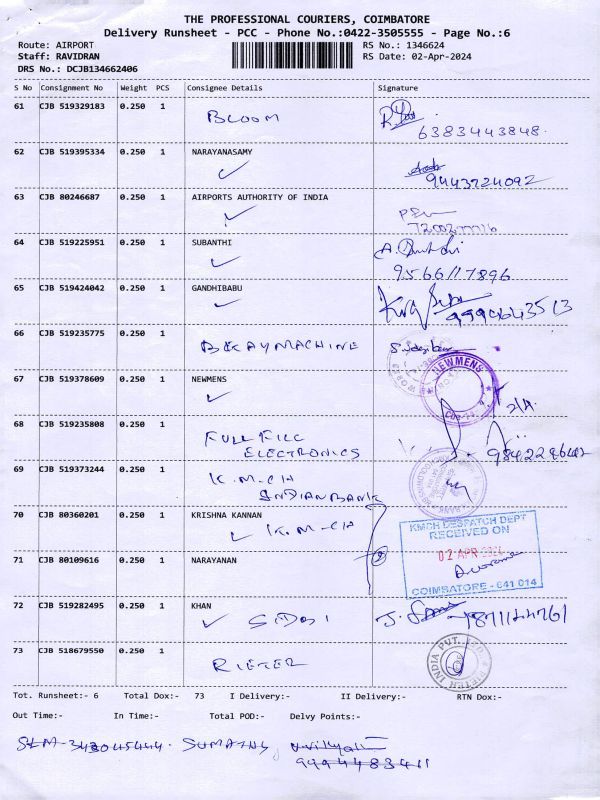 THE PROFESSIONAL COURIERS, COIMBATORE
Delivery Runsheet - PCC - Phone No.:0422-3505555 - Page No.:6
Route: AIRPORT RS No.: 1346624
Staff: RAVIDRAN RS Date: 02-Apr-2024
DRS No.: DCJB134662406
S No Consignment No Weight PCS Consignee Details Signature
61 CJB 519329183 0.250 1 BLOOM
6383443848
62 CJB 519395334 0.250 1 NARAYANASAMY
9443724092
63 CJB 80246687 0.250 1 AIRPORTS AUTHORITY OF INDIA
64 CJB 519225951 0.250 1 SUBANTHI
9566117896
65 CJB 519424042 0.250 1 GANDHIBABU
66 CJB 519235775 0.250 1 BEKAY MACHINE
67 CJB 519378609 0.250 1 NEWMENS
NEWMENS
68 CJB 519235808 0.250 1 FULL FILL
ELECTRONICS
69 CJB 519373244 0.250 1 K.M-CH
INDIAN BANK
70 CJB 80360201 0.250 1 KRISHNA KANNAN
K.M-CH
KMCH DESPATCH DEPT
RECEIVED ON
02 APR 2024
COIMBATORE - 641 014
71 CJB 80109616 0.250 1 NARAYANAN
72 CJB 519282495 0.250 1 KHAN
SIDBI
73 CJB 518679550 0.250 1 RIETER
Tot. Runsheet:- 6 Total Dox:- 73 I Delivery:- II Delivery:- RTN Dox:-
Out Time:- In Time:- Total POD:- Delvy Points:-
SLM-343045444. SUMATHY
9994483411